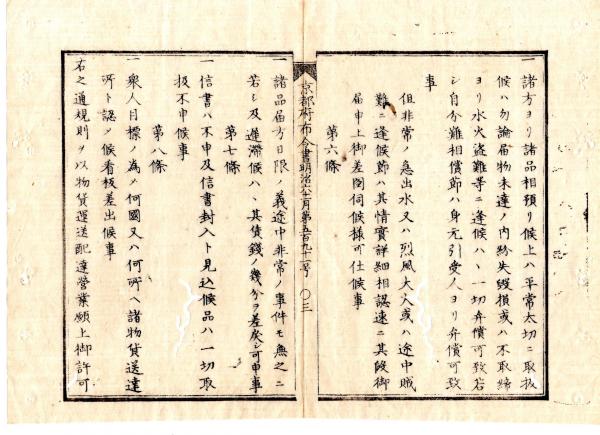 一 諸方ヨリ諸品相預リ候上ハ平常太切ニ取扱
候ハ勿論届物未達ノ内紛失毀損或ハ不取締
ヨリ水火盗難等ニ逢候ハヽ一切弁償可致若
シ自分難相償節ハ身元引受人ヨリ弁償可致
事
但非常ノ急出水又ハ烈風大火或ハ途中賊
難ニ逢候節ハ其情實詳細相認速ニ其段御
届申上御差図伺候様可仕候事
第六條
京都府布令書明治六年十二月第五百九十一号 〇三
一 諸品届方日限ノ義途中非常ノ事件モ無之ニ
若シ及遅滞候ハヽ其賃錢ノ幾分ヲ差戻シ可申事
第七條
一 信書ハ不申及信書封入ト見込候品ハ一切取
扱不申候事
第八條
一 衆人目標ノ為メ何國又ハ何所ヘ諸物貨送達
所ト認メ候看板差出候事
右之通規則ヲ以物貨運送配達營業願上御許可